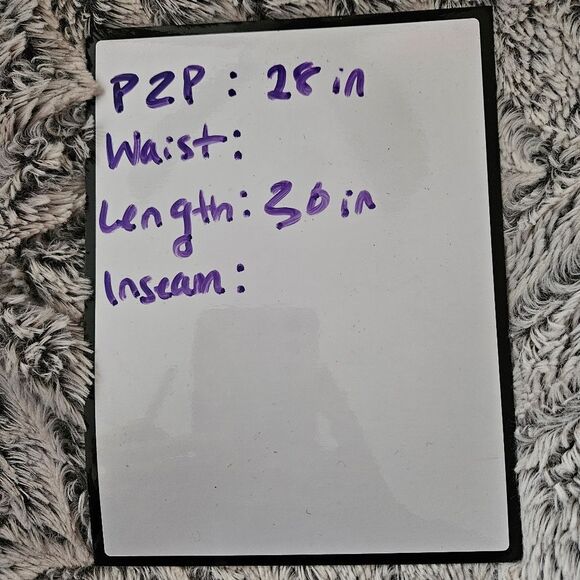 P2P: 28 in
Waist:
Length: 30 in
Inseam: